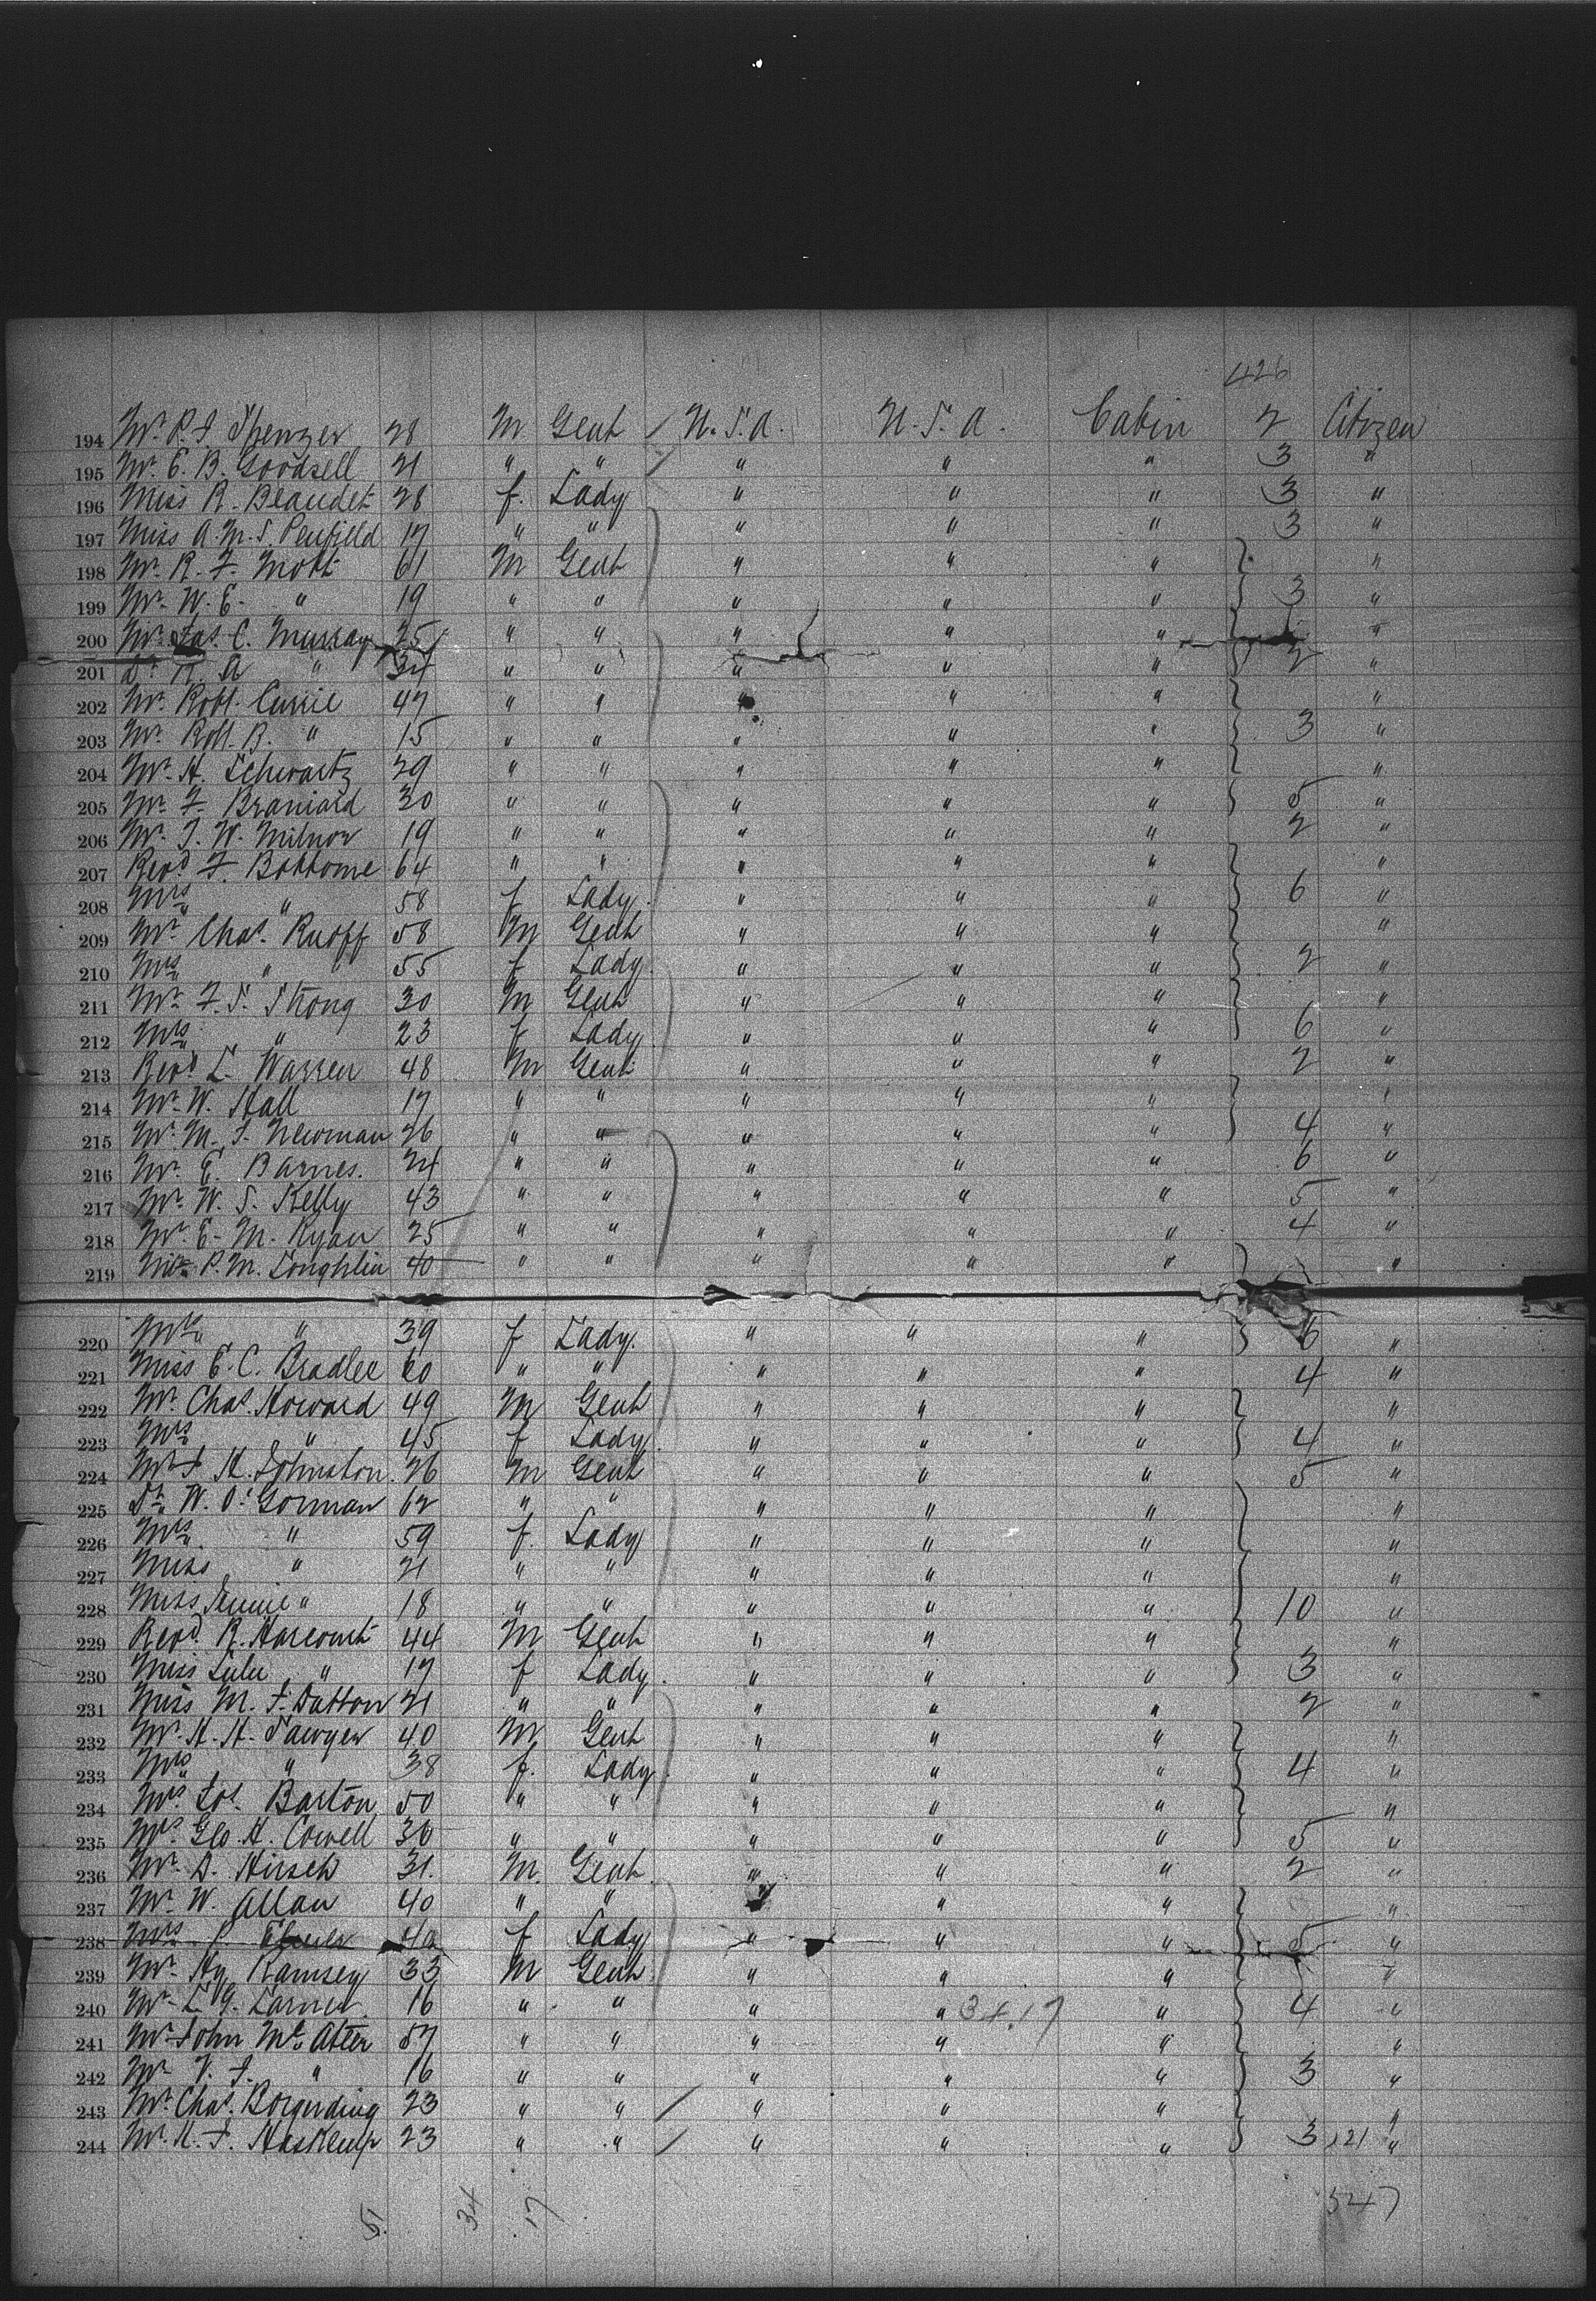 426
194 Mr. P. S. Spenzer 28 M Gent U.S.A. U.S.A. Cabin 2 Citizen
195 Mr. E. B. Goodsell 21 " " " " " 3 "
196 Miss R. Beaudet 28 f. Lady " " " 3 "
197 Miss A. M. S. Penfield 17 " " " " " 3 "
198 Mr. R. F. Mott 61 M Gent " " " "
199 Mr. W. E. " 19 " " " " " 3 "
200 Mr. Jas. C. Murray 25 " " " " " "
201 Dr. R. A " 34 " " " " " 2 "
202 Mr. Robt. Currie 47 " " " " " "
203 Mr. Robt. B. " 15 " " " " " 3 "
204 Mr. H. Schwartz 29 " " " " " "
205 Mr. F. Braniard 30 " " " " " 5 "
206 Mr. J. W. Milnor 19 " " " " " 2 "
207 Revd. F. Bottome 64 " " " " " "
208 Mrs. " 58 f Lady " " " 6 "
209 Mr. Chas. Ruoff 58 M Gent " " " "
210 Mrs " 55 f Lady " " " 2 "
211 Mr. F. S. Strong 30 M Gent " " " "
212 Mrs. " 23 f Lady " " " 6 "
213 Revd. L. Warren 48 M Gent " " " 2 "
214 Mr. W. Hall 17 " " " " " "
215 Mr. M. J. Newman 26 " " " " " 4 "
216 Mr. E. Barnes. 24 " " " " " 6 "
217 Mr. W. S. Kelly 43 " " " " " 5 "
218 Mr. E. M. Ryan 25 " " " " " 4 "
219 P. M. Loughlin 40 " " " " " "
220 Mrs. " 39 f Lady. " " " 6 "
221 Miss E. C. Bradlee 60 " " " " " 4 "
222 Mr. Chas. Howard 49 M Gent " " " "
223 Mrs " 45 f Lady. " " " 4 "
224 Mr. J. H. Johnston. 26 M Gent " " " 5 "
225 Dr. W. O'Gorman 62 " " " " " "
226 Mrs. " 59 f. Lady " " " "
227 Miss " 21 " " " " " "
228 Miss Jennie " 18 " " " " " 10 "
229 Revd. R. Harcourt 44 M Gent " " " "
230 Miss Lulu " 17 f Lady. " " " 3 "
231 Miss M. J. Dutton 21 " " " " " 2 "
232 Mr. H. H. Sawyer 40 M Gent " " " "
233 Mrs " 38 f. Lady. " " " 4 "
234 Mrs. Jos. Barton 50 " " " " " "
235 Mrs. Geo. H. Cowell 30 " " " " " 5 "
236 Mr. D. Hirsch 31. M. Gent. " " " 2 "
237 Mr. W. Allan 40 " " " " " "
238 Mrs. P. 40 f Lady " " " 5 "
239 Mr. Hy. Ramsey 33 M Gent. " " " "
240 Mr. L. G. 16 " " " " 34.17 " 4 "
241 Mr. John McAteer 57 " " " " " "
242 Mr. V. J. " 16 " " " " " 3 "
243 Mr. Chas. Borgerding 23 " " " " " "
244 Mr. H. J. Haskamp 23 " " " " " 3 121 "
51. 34 17 547